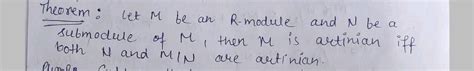 Theorem : Let M be an R-module and N be a
submodule of M, then M is artinian iff
both N and M/N are artinian.